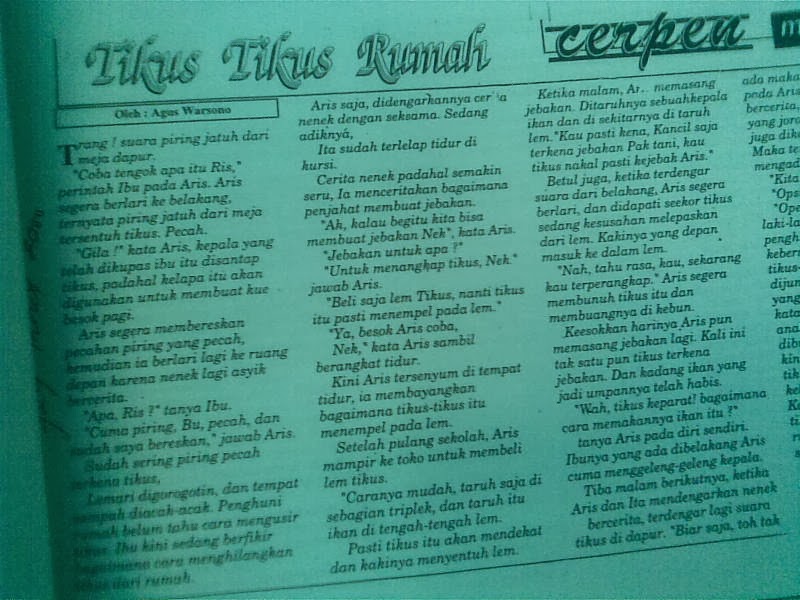 Tikus Tikus Rumah
cerpen
Oleh : Agus Warsono
Trang ! suara piring jatuh dari
meja dapur.
"Coba tengok apa itu Ris,"
perintah Ibu pada Aris. Aris
segera berlari ke belakang,
ternyata piring jatuh dari meja
tersentuh tikus. Pecah.
"Gila !" kata Aris, kepala yang
telah dikupas ibu itu disantap
tikus, padahal kelapa itu akan
digunakan untuk membuat kue
besok pagi.
Aris segera membereskan
pecahan piring yang pecah,
kemudian ia berlari lagi ke ruang
depan karena nenek lagi asyik
bercerita.
"Apa, Ris ?" tanya Ibu.
"Cuma piring, Bu, pecah, dan
sudah saya bereskan," jawab Aris.
Sudah sering piring pecah
terkena tikus,
Lemari digorogotin, dan tempat
sampah diacah-acak. Penghuni
rumah belum tahu cara mengusir
tikus. Ibu kini sedang berfikir
bagaimana cara menghilangkan
tikus dari rumah.
Aris saja, didengarkannya
nenek dengan seksama. Sedang
adiknya,
Ita sudah terlelap tidur di
kursi.
Cerita nenek padahal semakin
seru, Ia menceritakan bagaimana
penjahat membuat jebakan.
"Ah, kalau begitu kita bisa
membuat jebakan Nek", kata Aris.
"Jebakan untuk apa ?"
"Untuk menangkap tikus, Nek."
jawab Aris.
"Beli saja lem Tikus, nanti tikus
itu pasti menempel pada lem."
"Ya, besok Aris coba,
Nek," kata Aris sambil
berangkat tidur.
Kini Aris tersenyum di tempat
tidur, ia membayangkan
bagaimana tikus-tikus itu
menempel pada lem.
Setelah pulang sekolah, Aris
mampir ke toko untuk membeli
lem tikus.
"Caranya mudah, taruh saja di
sebagian triplek, dan taruh itu
ikan di tengah-tengah lem.
Pasti tikus itu akan mendekat
dan kakinya menyentuh lem.
Ketika malam, memasang
jebakan. Ditaruhnya sebuahkepala
ikan dan di sekitarnya di taruh
lem."Kau pasti kena, Kancil saja
terkena jebakan Pak tani, kau
tikus nakal pasti kejebak Aris."
Betul juga, ketika terdengar
suara dari belakang, Aris segera
berlari, dan didapati seekor tikus
sedang kesusahan melepaskan
dari lem. Kakinya yang depan
masuk ke dalam lem.
"Nah, tahu rasa, kau, sekarang
kau terperangkap." Aris segera
membunuh tikus itu dan
membuangnya di kebun.
Keesokkan harinya Aris pun
memasang jebakan lagi. Kali ini
tak satu pun tikus terkena
jebakan. Dan kadang ikan yang
jadi umpannya telah habis.
"Wah, tikus keparat! bagaimana
cara memakannya ikan itu ?"
tanya Aris pada diri sendiri.
Ibunya yang ada dibelakang Aris
cuma menggeleng-geleng kepala.
Tiba malam berikutnya, ketika
Aris dan Ita mendengarkan nenek
bercerita, terdengar lagi suara
tikus di dapur. "Biar saja, toh tak
ada maka
pada Aris
bercerita,
yang joro
juga diku
Maka te
mengad
"Kita
"Ops
"Ope
laki-la
pengh
keber
tikus-
dijum
yang
kata
ana
dib
kin
tik